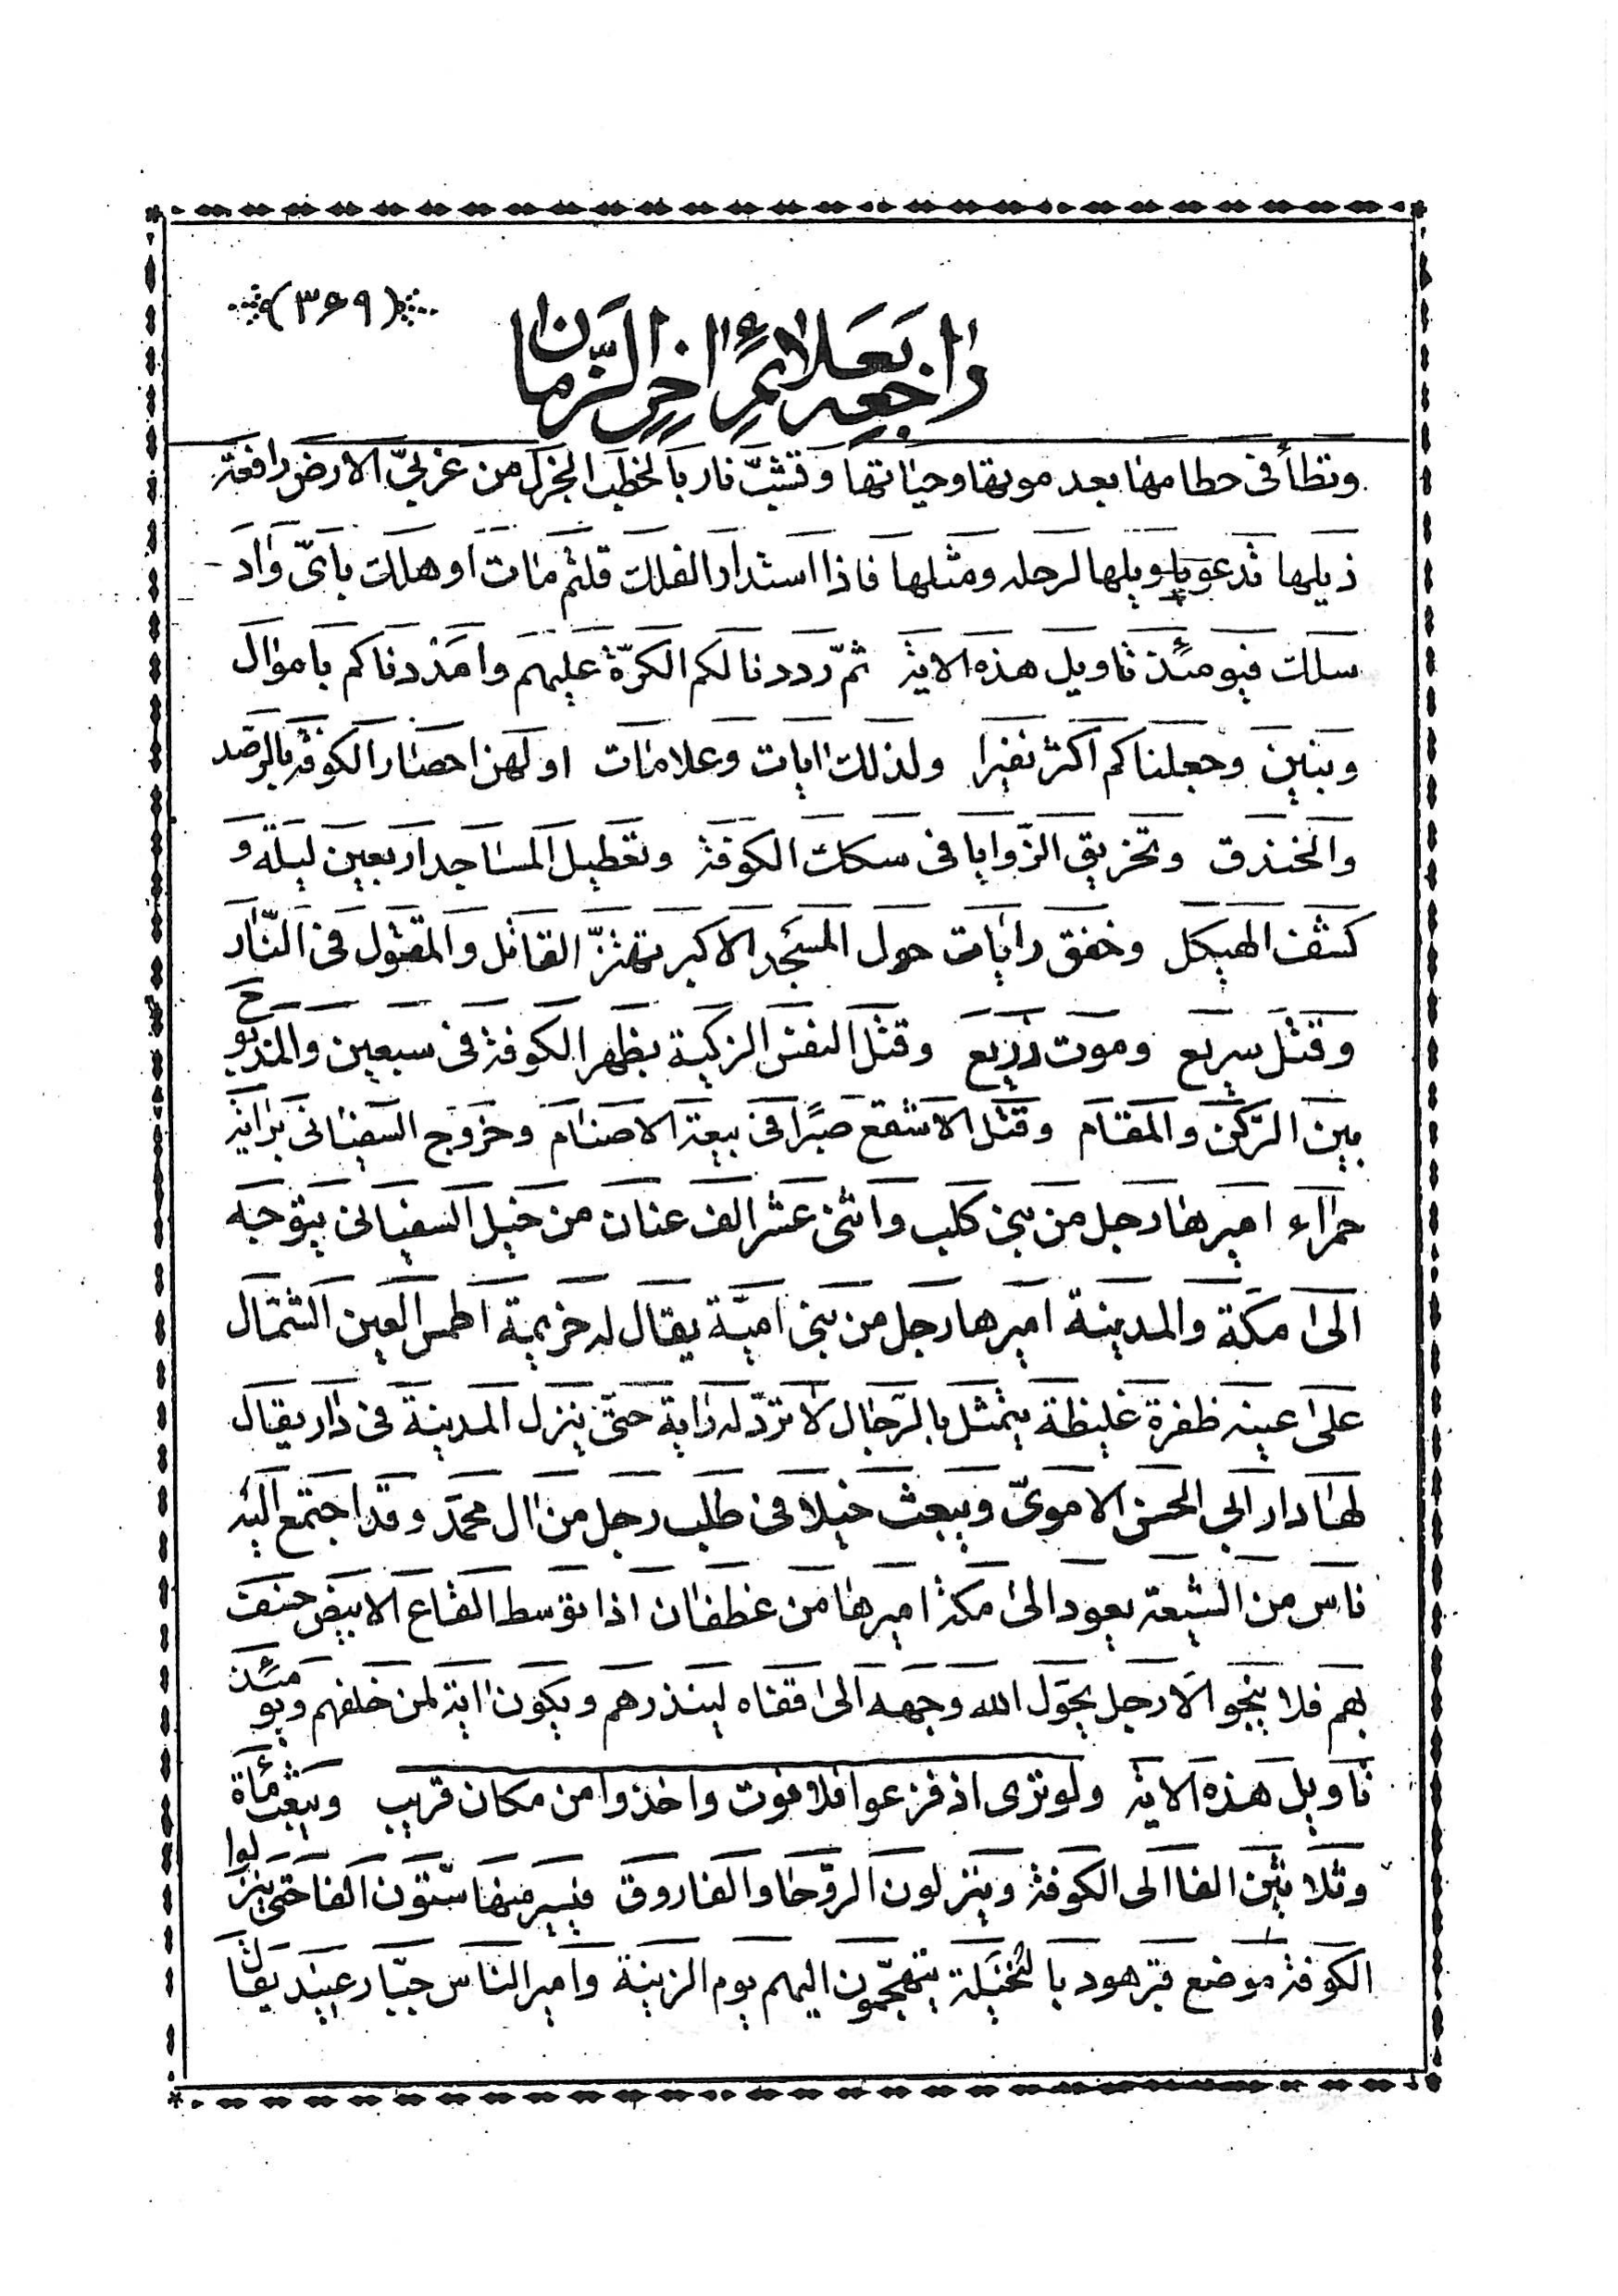 (۳۶۹)
راجعه بعلائم اخر الزمان
وتطأ فی حطامها بعد موتها وحیاتها وتشبّ نار بالحطب الجزل من غربیّ الارض رافعة
ذیلها تدعو یا ویلها لرحله ومثلها فاذا استدار الفلك قلتم مات او هلك بایّ واد
سلك فیومئذ تاویل هذه الایة ثمّ رددنا لكم الكرّة علیهم وامددناكم باموال
وبنین وجعلناكم اكثر نفیرا ولذلك ایات وعلامات اولهن احصار الكوفة بالرّصد
والخندق وتخریق الزّوایا فی سكك الكوفة وتعطیل المساجد اربعین لیلة و
كشف الهیكل وخفق رایات حول المسجد الاكبر تهتزّ القاتل والمقتول فی النّار
وقتل سریع وموت ذریع وقتل النفس الزكیة بظهر الكوفة فی سبعین والمذبوح
بین الرّكن والمقام وقتل الاسقع صبرًا فی بیعة الاصنام وخروج السفیانی برایة
حمراء امیرها رجل من بنی كلب واثنی عشر الف عنان من خیل السفیانی یتوجه
الی مكّة والمدینة امیرها رجل من بنی امیّة یقال له خزیمة اطمس العین الشمال
علی عینه ظفرة غلیظة یتمثل بالرّجال لا تردّ له رایة حتّی ینزل المدینة فی دار یقال
لها دار ابی الحسن الامویّ ویبعث خیلا فی طلب رجل من ال محمّد وقد اجتمع الیه
ناس من الشیعة یعود الی مكة امیرها من غطفان اذا توسط القاع الابیض خسف
بهم فلا ینجو الا رجل یحوّل الله وجهه الی قفاه لینذرهم ویكون ایة لمن خلفهم ویومئذ
تاویل هذه الایة ولو تری اذ فزعوا فلا فوت واخذوا من مكان قریب ویبعث مأة
وثلاثین الفا الی الكوفة وینزلون الرّوحا والفاروق فیسیر منها ستّون الفا حتی ینزلوا
الكوفة موضع قبر هود بالنّخیلة یتهجّمون الیهم یوم الزینة وامیر الناس جبّار عنید یقال